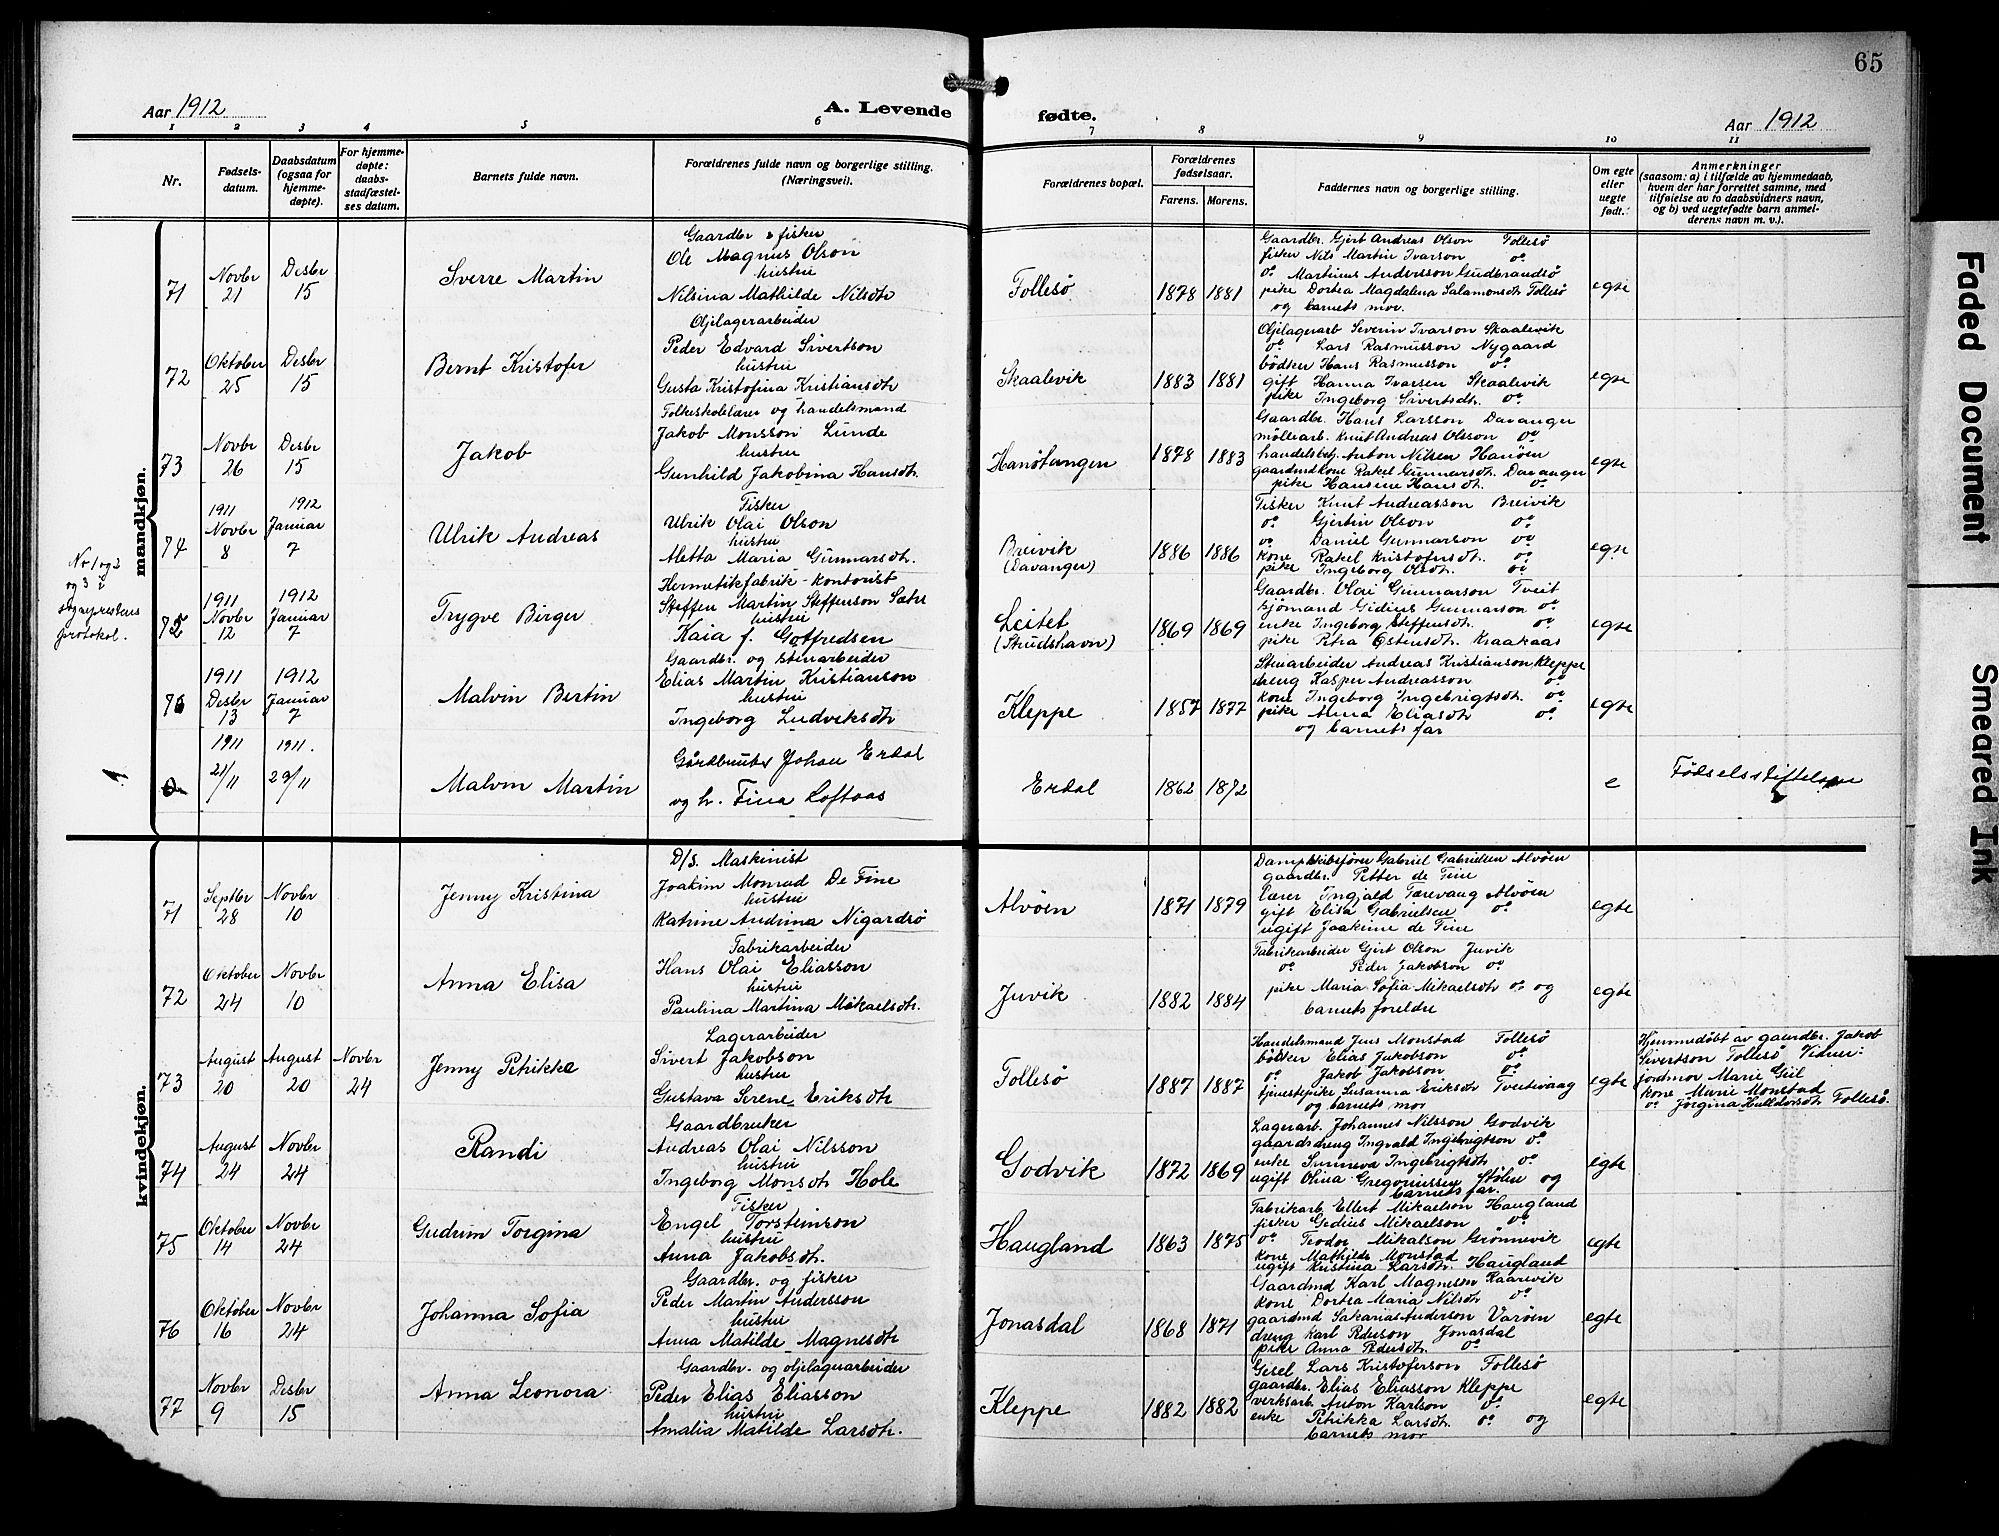 65
Aar 1912
A. Levende
fødte.
Aar 1912
1 2 3 4 5 6 7 8 9 10 11
Nr.
Fødsels-
datum.
Daabsdatum
(ogsaa for
hjemme-
døpte).
For hjemme-
døpte:
daabs-
stadfæstel-
ses datum.
Barnets fulde navn.
Forældrenes fulde navn og borgerlige stilling.
(Næringsvei).
Forældrenes bopæl.
Forældrenes
fødselsaar.
Farens. Morens.
Faddernes navn og borgerlige stilling.
Om egte
eller
uegte
født.
Anmerkninger
(saasom: a) i tilfælde av hjemmedaab,
hvem der har forrettet samme, med
tilføielse av to daabsvidners navn,
og b) ved uegtefødte barn anmel-
derens navn m. v.).
mandkjøn.
71
Novbr
21
Desbr
15
Sverre Martin
Gaardbr & fisker
Ole Magnus Olson
hustru
Nilsina Mathilde Nilsdtr
Follesö
1878 1881
Gaardbr. Gjert Andreas Olson Follesö
fisker Nils Martin Ivarson do
do Martinus Andersson Gudbrandsö
pike Dortea Magdalena Salamonsdtr Follesö
og barnets mor.
egte
72
Oktober
25
Desbr
15
Bernt Kristofer
Oljelagerarbeider
Peder Edvard Sivertson
hustru
Gusta Kristofina Kristiansdtr
Skaalevik
1883 1881
Oljelagerarb Severin Ivarson Skaalevik
do Lars Rasmusson Nygaard
bödker Hans Rasmusson do
gift Hanna Ivarsen Skaalevik
pike Ingeborg Sivertsdtr. do
egte
73
Novbr
26
Desbr
15
Jakob
Folkeskolelærer og handelsmand
Jakob Monsson Lunde
hustru
Gunhild Jakobina Hansdtr
Hanötangen
1878 1883
Gaardbr. Hans Larsson Davanger
möllearb. Knut Andreas Olsson do
handelsbetj. Anton Nilsen Hanöen
gaardmdkone Rakel Gunnarsdtr. Davanger
pike Hansine Hansdtr. do
egte
74
1911
Novbr
8
1912
Januar
7
Ulrik Andreas
Fisker
Ulrik Olai Olson
hustru
Aletta Maria Gunnarsdtr.
Breivik
(Davanger)
1886 1886
Fisker Knut Andreasson Breivik
do Gjertin Olson do
do Daniel Gunnarson do
kone Rakel Kristofersdtr. do
pike Ingeborg Olsdtr. do
egte
Nr 1 og 2
og 3 i
sogneprestens
protokol.
75
1911
Novbr
12
1912
Januar
7
Trygve Birger
Hermetikfabrik-kontorist
Steffen Martin Steffenson Sætre
hustru
Kaia f. Goffredsen
Leitet
(Strudshavn)
1869 1869
Gaardbr. Olai Gunnarson Tveit
sjömand Gidius Gunnarson do
enke Ingeborg Steffensdtr. do
pike Petra Östensdtr. Kraakaas
egte
76
1911
Desbr
13
1912
Januar
7
Malvin Bertin
Gaardbr. og stenarbeider
Elias Martin Kristianson
hustru
Ingeborg Ludviksdtr
Kleppe
1857 1877
Stenarbeider Andreas Kristianson Kleppe
dreng Kasper Andreasson do
kone Ingeborg Ingebrigtsdtr. do
pike Anna Eliasdtr do
og barnets far
egte
1911
21/11
1911.
29/11
Malvin Martin
Gårdbruker Johan Erdal
og h. Fina Loftaas
Erdal
1862 1872
e
Fødselsstiftelsen
kvindekjøn.
71
Septbr
28
Novbr
10
Jenny Kristina
D/S. Maskinist
Joakim Monrad De Fine
hustru
Katrine Andrina Nigardsö
Alvöen
1871 1879
Dampskibsförer Gabriel Gabrielsen Alvöen
gaardbr. Petter de Fine
Lærer Ingjald Tærevaag Alvöen
gift Elisa Gabrielsen do
ugift Joakime de Fine
egte
72
Oktober
24
Novbr
10
Anna Elisa
Fabrikarbeider
Hans Olai Eliasson
hustru
Paulina Martina Mikaelsdtr.
Juvik
1882 1884
Fabrikarbeider Gjert Olson Juvik
do Peder Jakobson do
pike Maria Sofia Mikaelsdtr do og
barnets foreldre
egte
73
August
20
August
20
Novbr
24
Jenny Petrikke
Lagerarbeider
Sivert Jakobson
hustru
Gustava Serene Eriksdtr
Follesö
1887 1887
Handelsmand Jens Monstad Follesö
bödker Elias Jakobson do
do Jakob Jakobson do
tjenestepike Susanna Eriksdtr Tveitevaag
og barnets mor
egte
Hjemmedöbt av gaardbr. Jakob
Sivertson Follesö Vidner:
jordmor Marie Geil
kone Marie Monstad
do Jörgina Halldorsdtr Follesö.
74
August
24
Novbr
24
Randi
Gaardbruker
Andreas Olai Nilsson
hustru
Ingeborg Monsdtr Hole
Godvik
1872 1869
Lagerarb. Johannes Nilsson Godvik
gaardsdreng Ingvald Ingebrigtson do
enke Sunneva Ingebrigtsdtr do
ugift Olina Gregoriussen Stölen og
barnets far.
egte
75
Oktober
14
Novbr
24
Gudrun Torgina
Fisker
Engel Torsteinson
hustru
Anna Jakobsdtr.
Haugland
1863 1875
Fabrikarb. Ellert Mikaelson Haugland
fisker Gedius Mikaelson do
do Teodor Mikalson Grönnevik
kone Mathilde Monstad
ugift Kristina Larsdtr. Haugland
egte
76
Oktober
16
Novbr
24
Johanna Sofia
Gaardbr. og fisker
Peder Martin Andersson
hustru
Anna Matilde Magnesdtr
Jonasdal
1868 1871
Gaardmd Karl Magnesen Raarevik
kone Dortea Maria Nilsdtr do
gaardmd Sakarias Anderson Varöen
dreng Karl Pederson Jonasdal
pike Anna Pedersdtr. do
egte
77
Novbr
9
Desbr
15
Anna Leonora
Gaardbr. og oljelagerarbeider
Peder Elias Eliasson
hustru
Amalia Matilde Larsdtr.
Kleppe
1882 1882
Gisel Lars Kristoferson Follesö
gaardbr. Elias Eliasson Kleppe
verksarb. Anton Karlson do
enke Petrikka Larsdtr. do og
barnets mor
egte
Faded Document
Smeared Ink